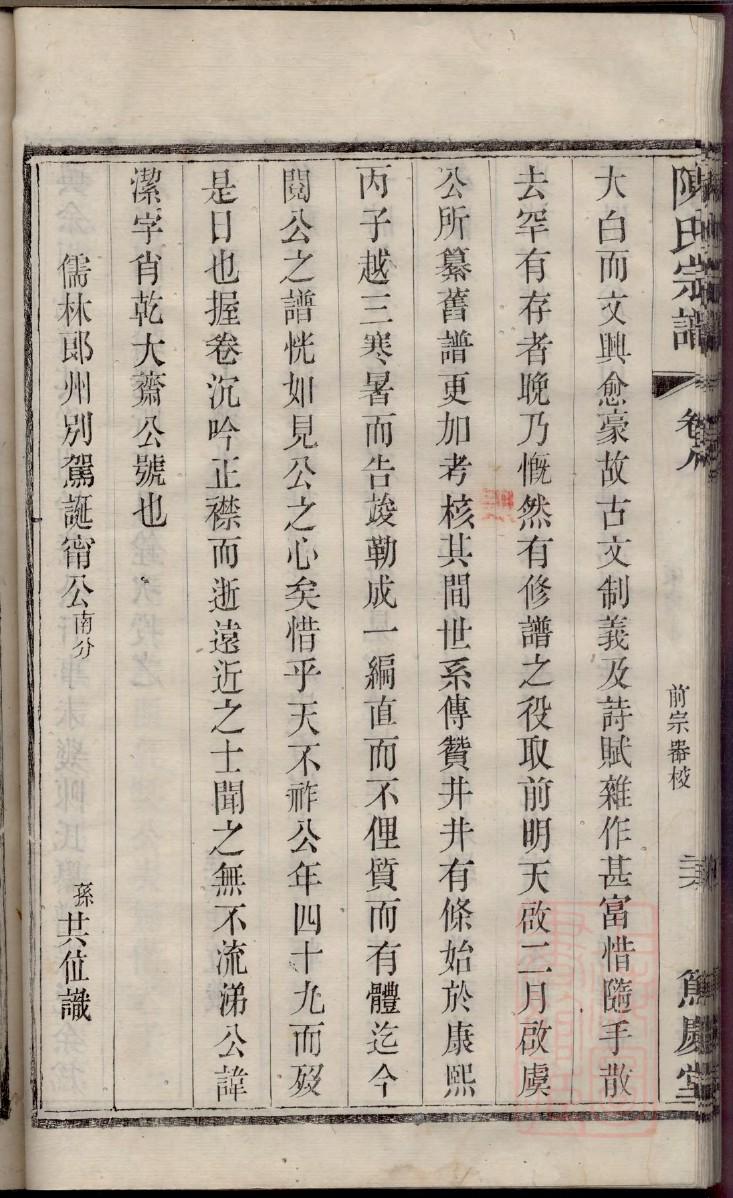 陳氏宗譜
卷八
前宗器棱
篤慶堂
大白而文興愈豪故古文制義及詩賦雜作甚富惜隨手散
去罕有存者晚乃慨然有修譜之役取前明天啟二月啟虞
公所纂舊譜更加考核其間世系傳贊井井有條始於康熙
丙子越三寒暑而告竣勒成一編直而不俚質而有體迄今
閱公之譜恍如見公之心矣惜乎天不祚公年四十九而歿
是日也握卷沉吟正襟而逝遠近之士聞之無不流涕公諱
潔字肖乾大齋公號也
孫共位識
儒林郎州別駕誕甯公南分